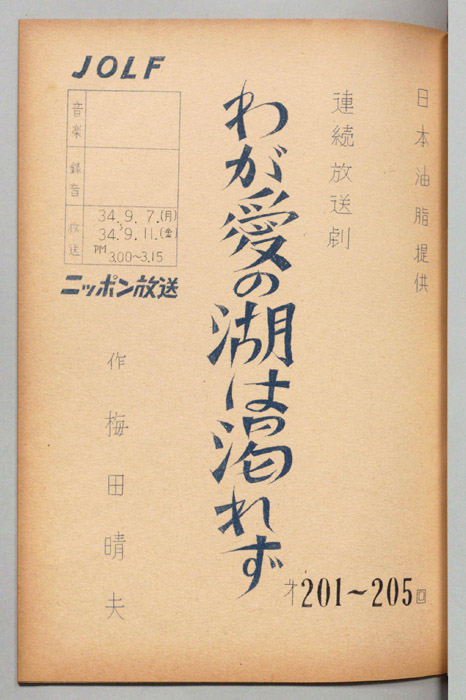 日本油脂提供
連続放送劇
わが愛の湖は涸れず
才201〜205回
JOLF
音楽
録音
放送
34.9.7.(月)
〜
34.9.11.(金)
PM 3.00〜3.15
ニッポン放送
作 梅田晴夫